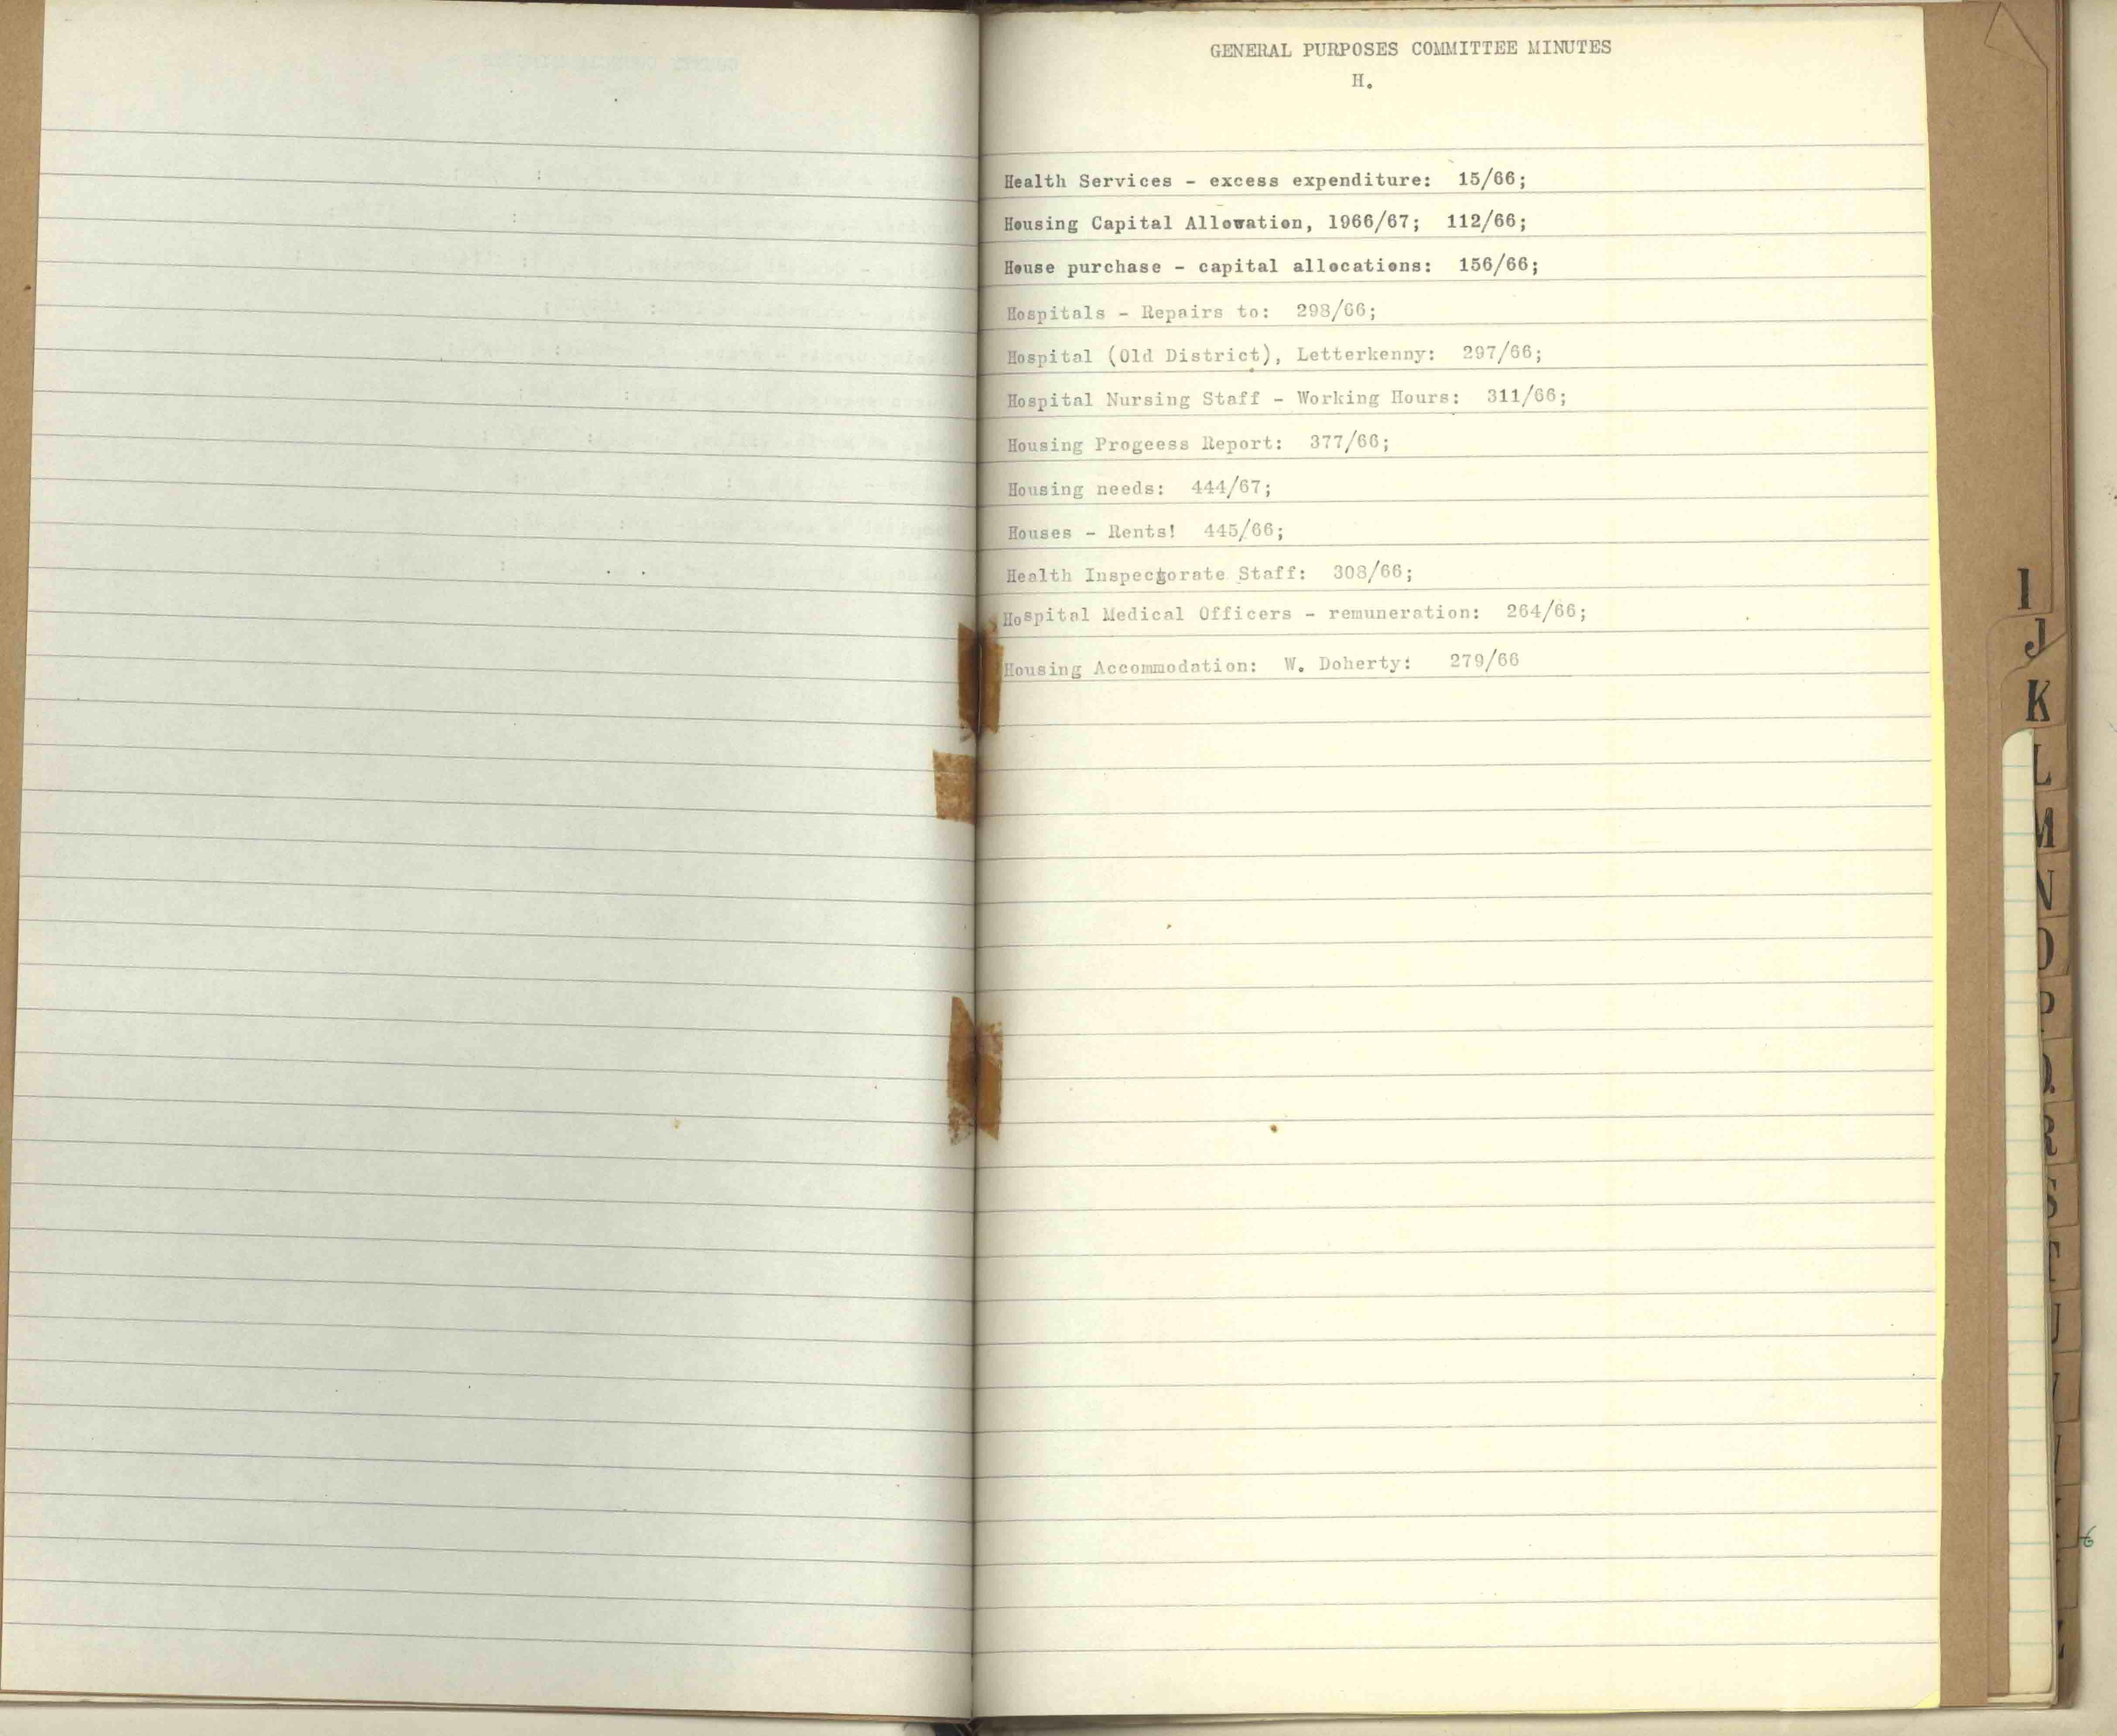 GENERAL PURPOSES COMMITTEE MINUTES
H.
Health Services - excess expenditure: 15/66;
Housing Capital Allowation, 1966/67; 112/66;
House purchase - capital allocations: 156/66;
Hospitals - Repairs to: 298/66;
Hospital (Old District), Letterkenny: 297/66;
Hospital Nursing Staff - Working Hours: 311/66;
Housing Progeess Report: 377/66;
Housing needs: 444/67;
Houses - Rents! 445/66;
Health Inspectorate Staff: 308/66;
Hospital Medical Officers - remuneration: 264/66;
Housing Accommodation: W. Doherty: 279/66
I
J
K
L
M
N
O
P
Q
R
S
T
U
V